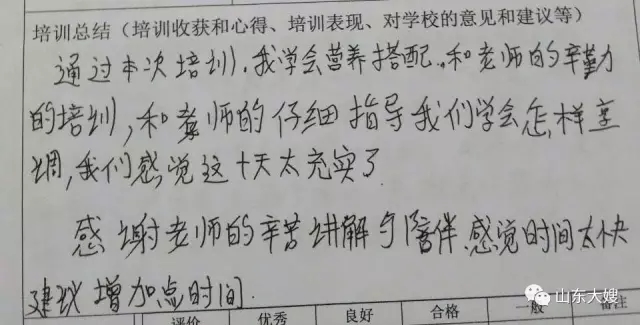 培训总结（培训收获和心得、培训表现、对学校的意见和建议等）
通过本次培训，我学会营养搭配，和老师的辛勤
的培训，和老师的仔细指导我们学会怎样烹
调，我们感觉这十天太充实了
感谢老师的辛苦讲解与陪伴，感觉时间太快
建议增加点时间.
山东大嫂
评价 优秀 良好 合格 一般 备注